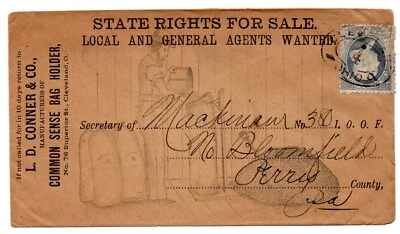 STATE RIGHTS FOR SALE.
LOCAL AND GENERAL AGENTS WANTED.
If not called for in 10 days return to
L. D. CONNER & CO.,
MANUFACTURERS OF
COMMON SENSE BAG HOLDER,
No. 78 Superior St., Cleveland, O.
Secretary of Mackinaur No. 380 I. O. O. F.
N. Bloomfield
Perry County,
Pa